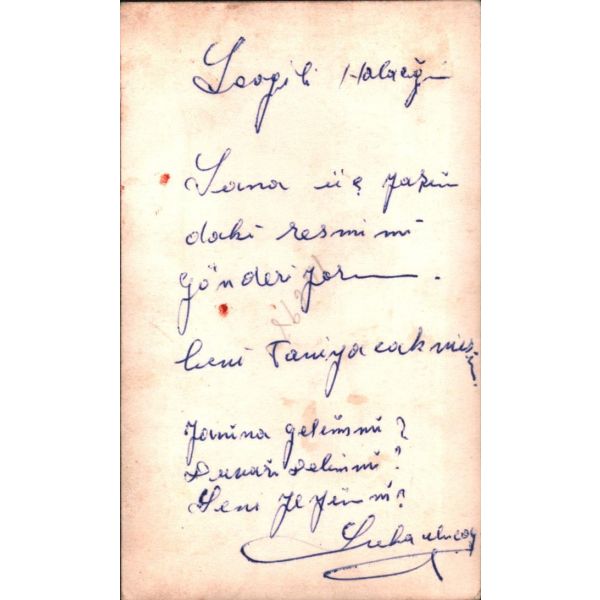 Sevgili Halacığı
Sana üç yaşın
daki resmimi
gönderiyorum.
beni Taniyacakmısı
Yanına gelsinmi?
Seni yeyinmi?